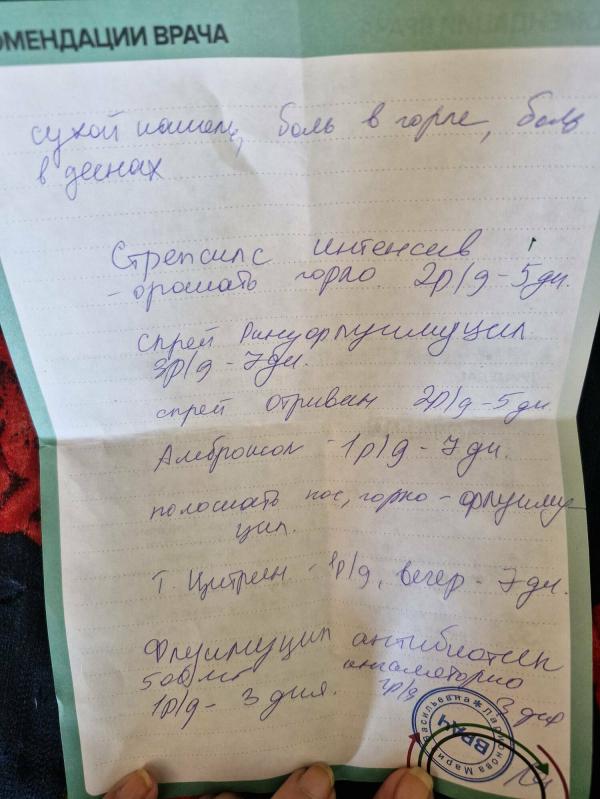 ОМЕНДАЦИИ ВРАЧА
сухой кашель, боль в горле, боль
в деснах
Стрепсилс интенсив
- орошать горло 2р/д - 5 дн.
спрей Ринофлуимуцил
3р/д - 7 дн.
спрей отривин 2р/д - 5 дн
Амброксол - 1р/д - 7 дн.
полоскать нос, горло - флуиму
цил.
т. Цитрин - 1р/д, вечер - 7 дн.
Флуимуцил антибиотик
500 мг ингаляторно
1р/д - 3 дня. 3 дня
Васильевна * Мари
ВРАЧ